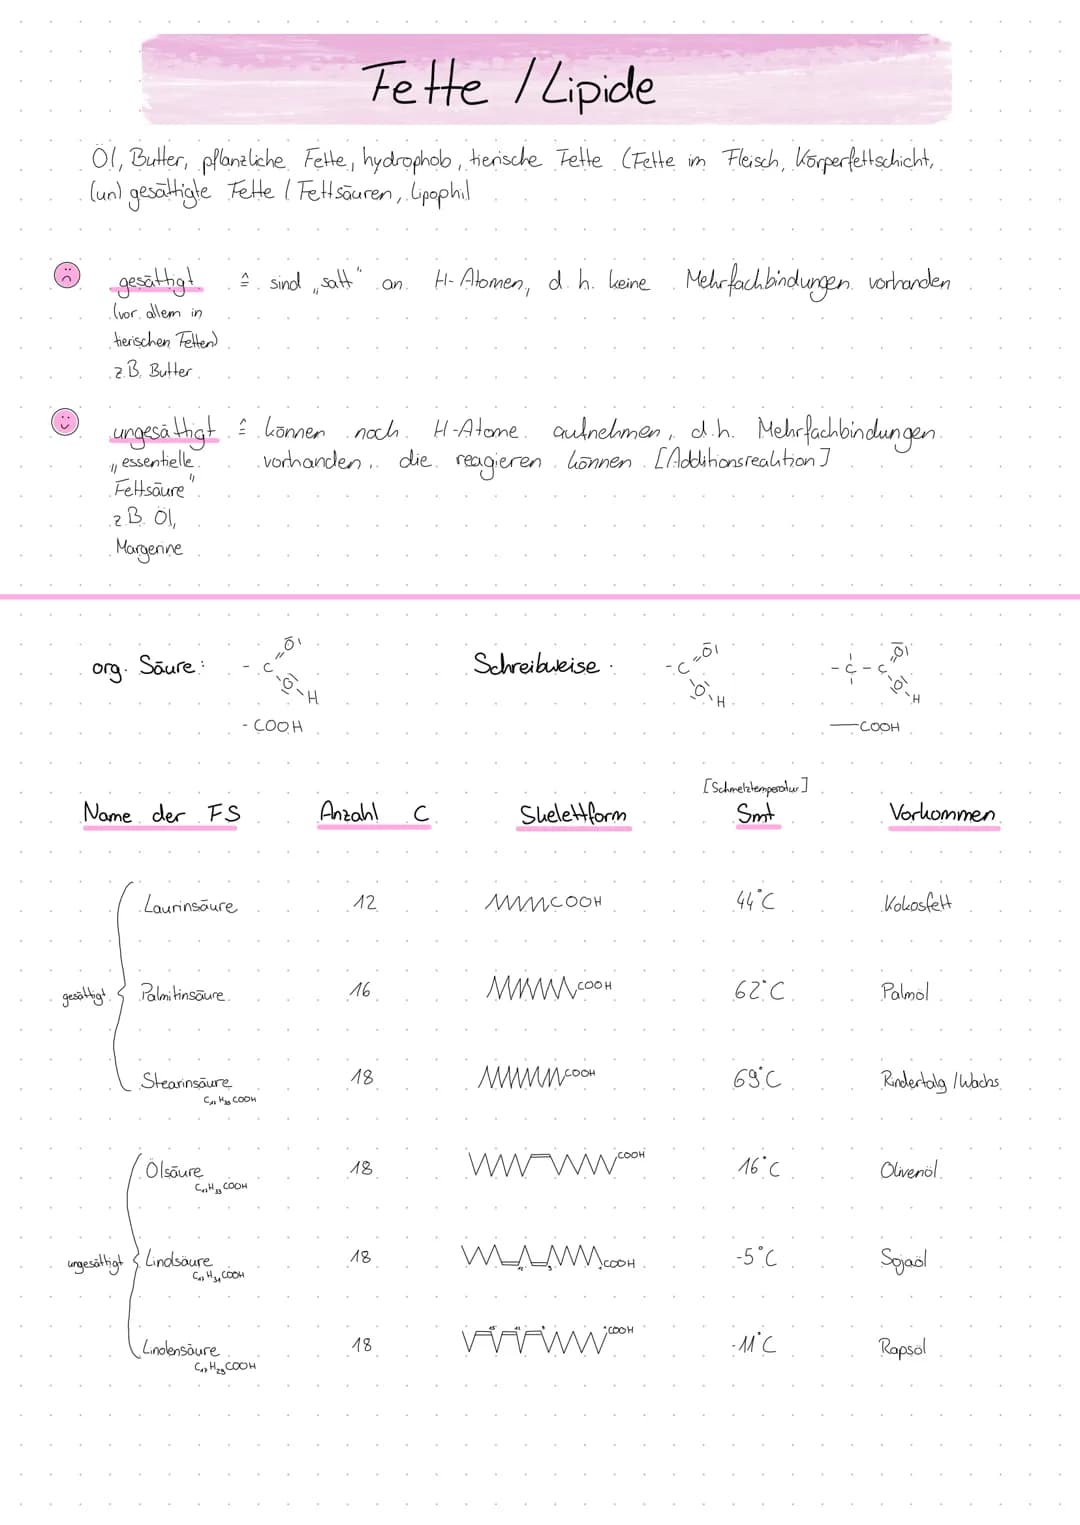 Fette / Lipide
Öl, Butter, pflanzliche Fette, hydrophob, tierische Fette (Fette im Fleisch, Körperfettschicht,
(un) gesättigte Fette / Fettsäuren, lipophil
gesättigt ≙ sind „satt" an H-Atomen, d. h. keine Mehrfachbindungen vorhanden
(vor allem in
tierischen Fetten)
z.B. Butter
ungesättigt ≙ können noch H-Atome aufnehmen, d.h. Mehrfachbindungen
„essentielle vorhanden, die reagieren können [Additionsreaktion]
Fettsäure"
z.B. Öl,
Margerine
org. Säure: - C O O H Schreibweise: - C O O H - C - C O O H
- COOH —COOH
[Schmelztemperatur]
Name der FS Anzahl C Skelettform Smt Vorkommen
Laurinsäure 12 COOH 44°C Kokosfett
gesättigt Palmitinsäure 16 COOH 62°C Palmöl
Stearinsäure 18 COOH 69°C Rindertalg / Wachs
COOH
Ölsäure 18 COOH 16°C Olivenöl
C17H33COOH
ungesättigt Lindsäure 18 COOH -5°C Sojaöl
C17H31COOH
Linolensäure 18 COOH -11°C Rapsöl
C17H29COOH